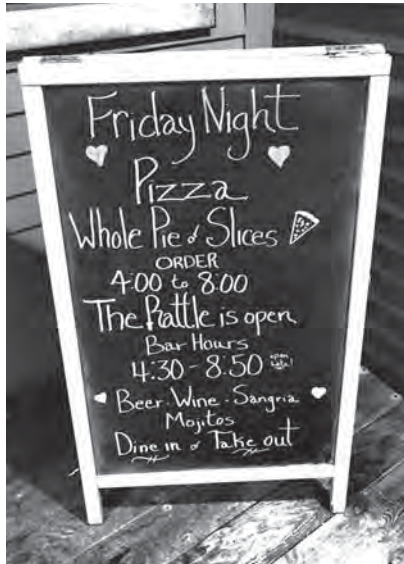 Friday Night
Pizza
Whole Pie & Slices
ORDER
4:00 to 8:00
The Rattle is open
Bar Hours
4:30 - 8:50 open late!
Beer · Wine · Sangria
Mojitos
Dine in & Take out